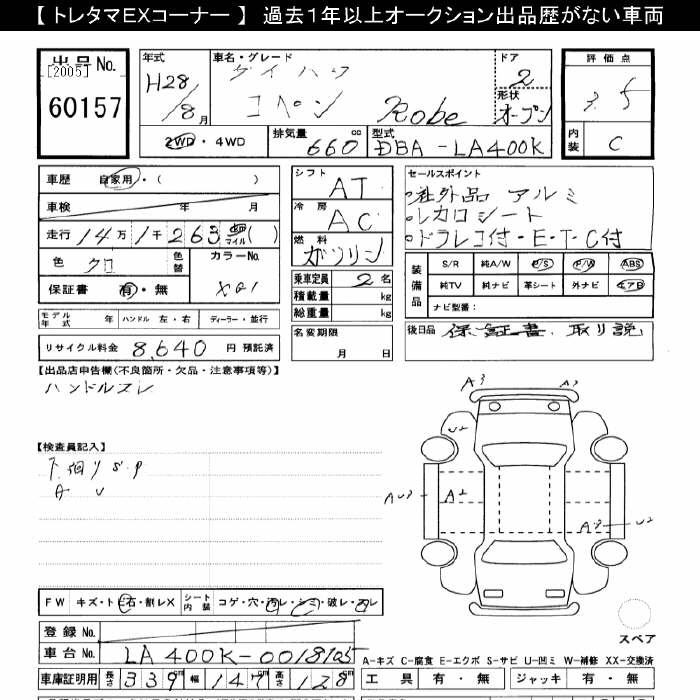 【トレタマEXコーナー】 過去1年以上オークション出品歴がない車両
出号No.
[2005]
60157
年式
H28/8月
車名・グレード
ダイハツ
コペン Robe
ドア
2
形状
オープン
評価点
3.5
内装
C
2WD・4WD
排気量 660 cc
型式 DBA-LA400K
車歴 自家用・( )
車検 年 月
走行 14万1千263 マイル ( )
色 クロ
色替
カラーNo.
X01
保証書 有・無
シフト AT
冷房 AC
燃料 ガソリン
乗車定員 2名
積載量 kg
総重量 kg
名変期限
月 日
セールスポイント
・社外品アルミ
・レカロシート
・ドラレコ付・E・T・C付
装備品
S/R 純A/W P/S P/W ABS
純TV 純ナビ 革シート 外ナビ エアB
ナビ型番:
後日品 保証書、取り説
モデル年式 年 ハンドル 左・右 ディーラー・並行
リサイクル料金 8,640 円 預託済
【出品店申告欄(不良箇所・欠品・注意事項等)】
ハンドルスレ
【検査員記入】
下廻りS.P
A U
A3 A3
U2
AU3 A2
A3 U2
FW キズ・ト石・割レX シート内装 コゲ・穴・汚レ・シミ・破レ・スレ
登録No.
車台No. LA400K-0018105
スペア
A-キズ C-腐食 E-エクボ S-サビ U-凹ミ W-補修 XX-交換済
車庫証明用 長さ 339 幅 147 高さ 128
工具 有・無 ジャッキ 有・無